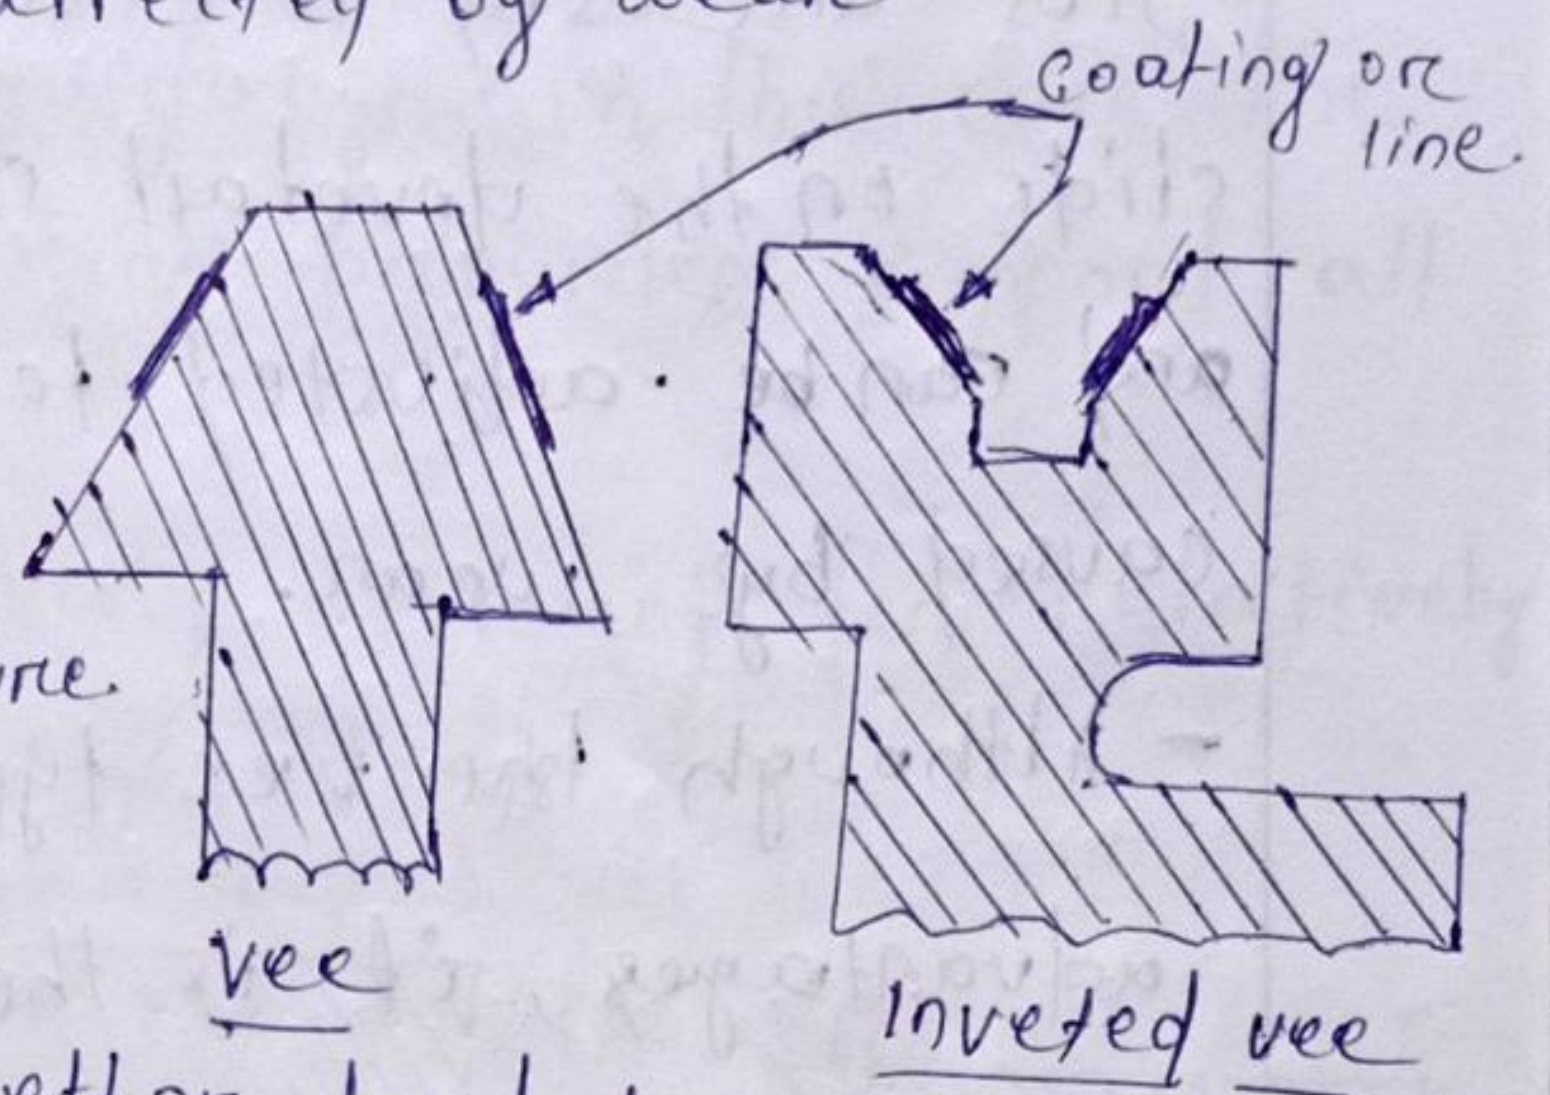 by wear
Coating or
line.
Vee
Inveted vee